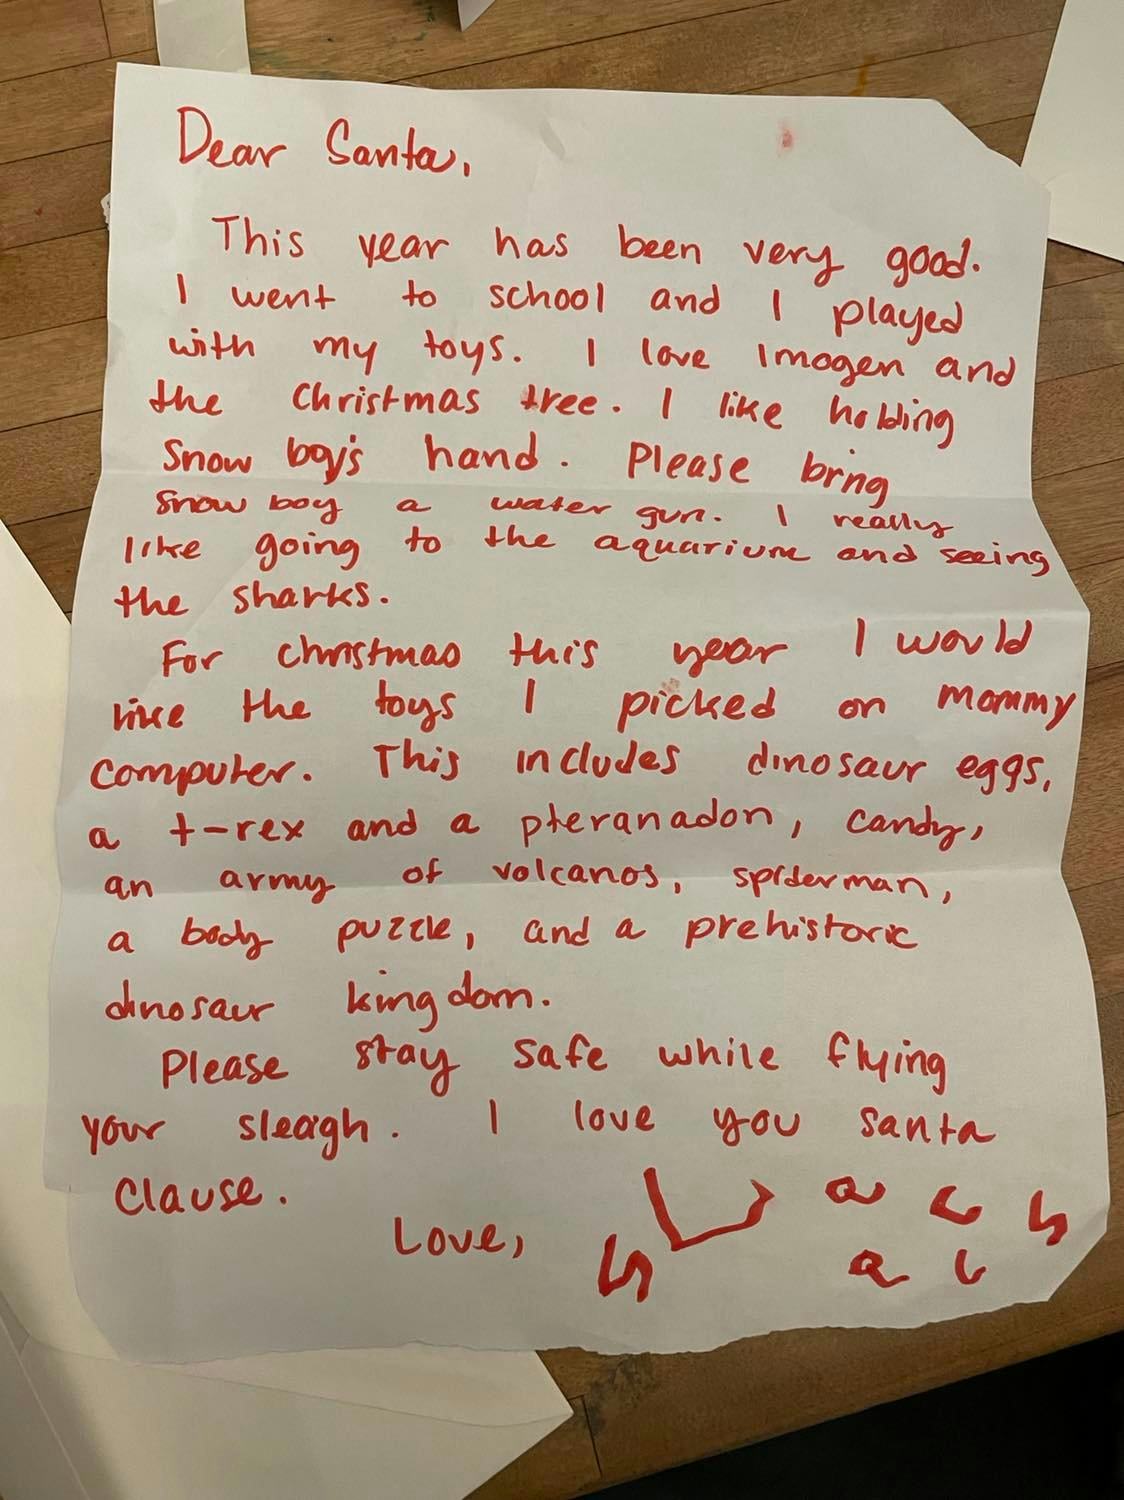 Dear Santa,
This year has been very good.
I went to school and I played
with my toys. I love Imogen and
the Christmas tree. I like holding
Snow boy's hand. Please bring
Snow boy a water gun. I really
like going to the aquarium and seeing
the sharks.
For christmas this year I would
like the toys I picked on mommy
computer. This includes dinosaur eggs,
a t-rex and a pteranadon, candy,
an army of volcanos, spiderman,
a body puzzle, and a prehistoric
dinosaur kingdom.
Please stay safe while flying
your sleagh. I love you santa
Clause.
Love,